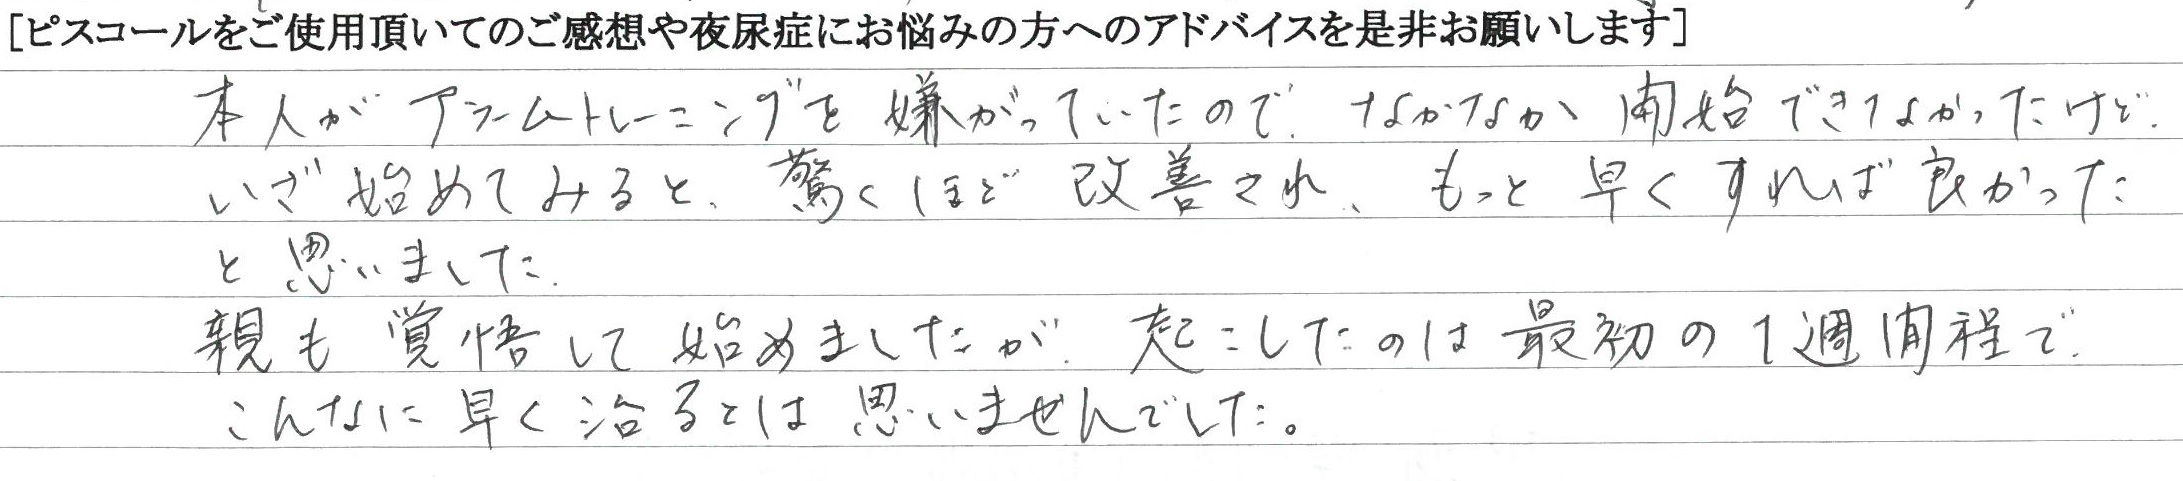 [ピスコールをご使用頂いてのご感想や夜尿症にお悩みの方へのアドバイスを是非お願いします]
本人がアラームトレーニングを嫌がっていたので、なかなか開始できなかったけど、
いざ始めてみると、驚くほど改善され、もっと早くすれば良かった
と思いました。
親も覚悟して始めましたが、起こしたのは最初の1週間程で、
こんなに早く治るとは思いませんでした。